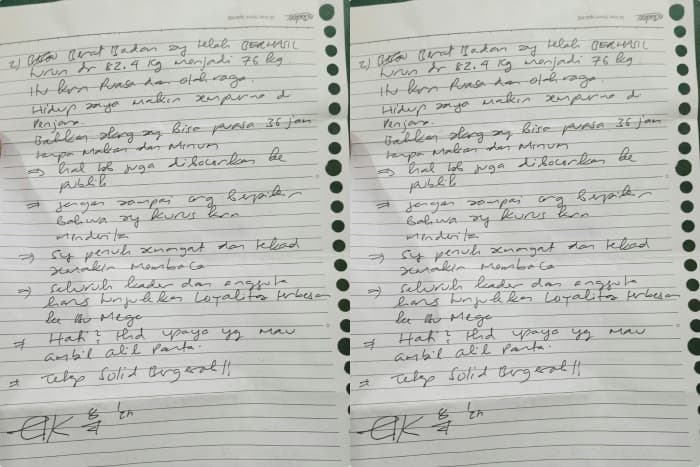 2) Berat Badan sy telah BERHASIL
turun dr 82.4 Kg menjadi 76 kg.
Itu krn Puasa dan olah raga.
Hidup saya makin sempurna di
Penjara.
Bahkan skrg sy Bisa puasa 36 jam
tanpa Makan dan Minum
⇒ hal tsb juga dibocorkan ke
publik
⇒ jangan sampai org berpikir
Bahwa sy kurus krn
menderita
⇒ Sy penuh semangat dan tekad
semakin Membaca
⇒ seluruh kader dan anggota
harus tunjukkan Loyalitas terbesar
ke Bu Mega
⇒ Hati² thd upaya yg mau
ambil alih Partai.
⇒ Tetap Solid Bergerak!!
8/4
2) Berat Badan sy telah BERHASIL
turun dr 82.4 Kg menjadi 76 kg.
Itu krn Puasa dan olah raga.
Hidup saya makin sempurna di
Penjara.
Bahkan skrg sy Bisa puasa 36 jam
tanpa Makan dan Minum
⇒ hal tsb juga dibocorkan ke
publik
⇒ jangan sampai org berpikir
Bahwa sy kurus krn
menderita
⇒ Sy penuh semangat dan tekad
semakin Membaca
⇒ seluruh kader dan anggota
harus tunjukkan Loyalitas terbesar
ke Bu Mega
⇒ Hati² thd upaya yg mau
ambil alih Partai.
⇒ Tetap Solid Bergerak!!
8/4